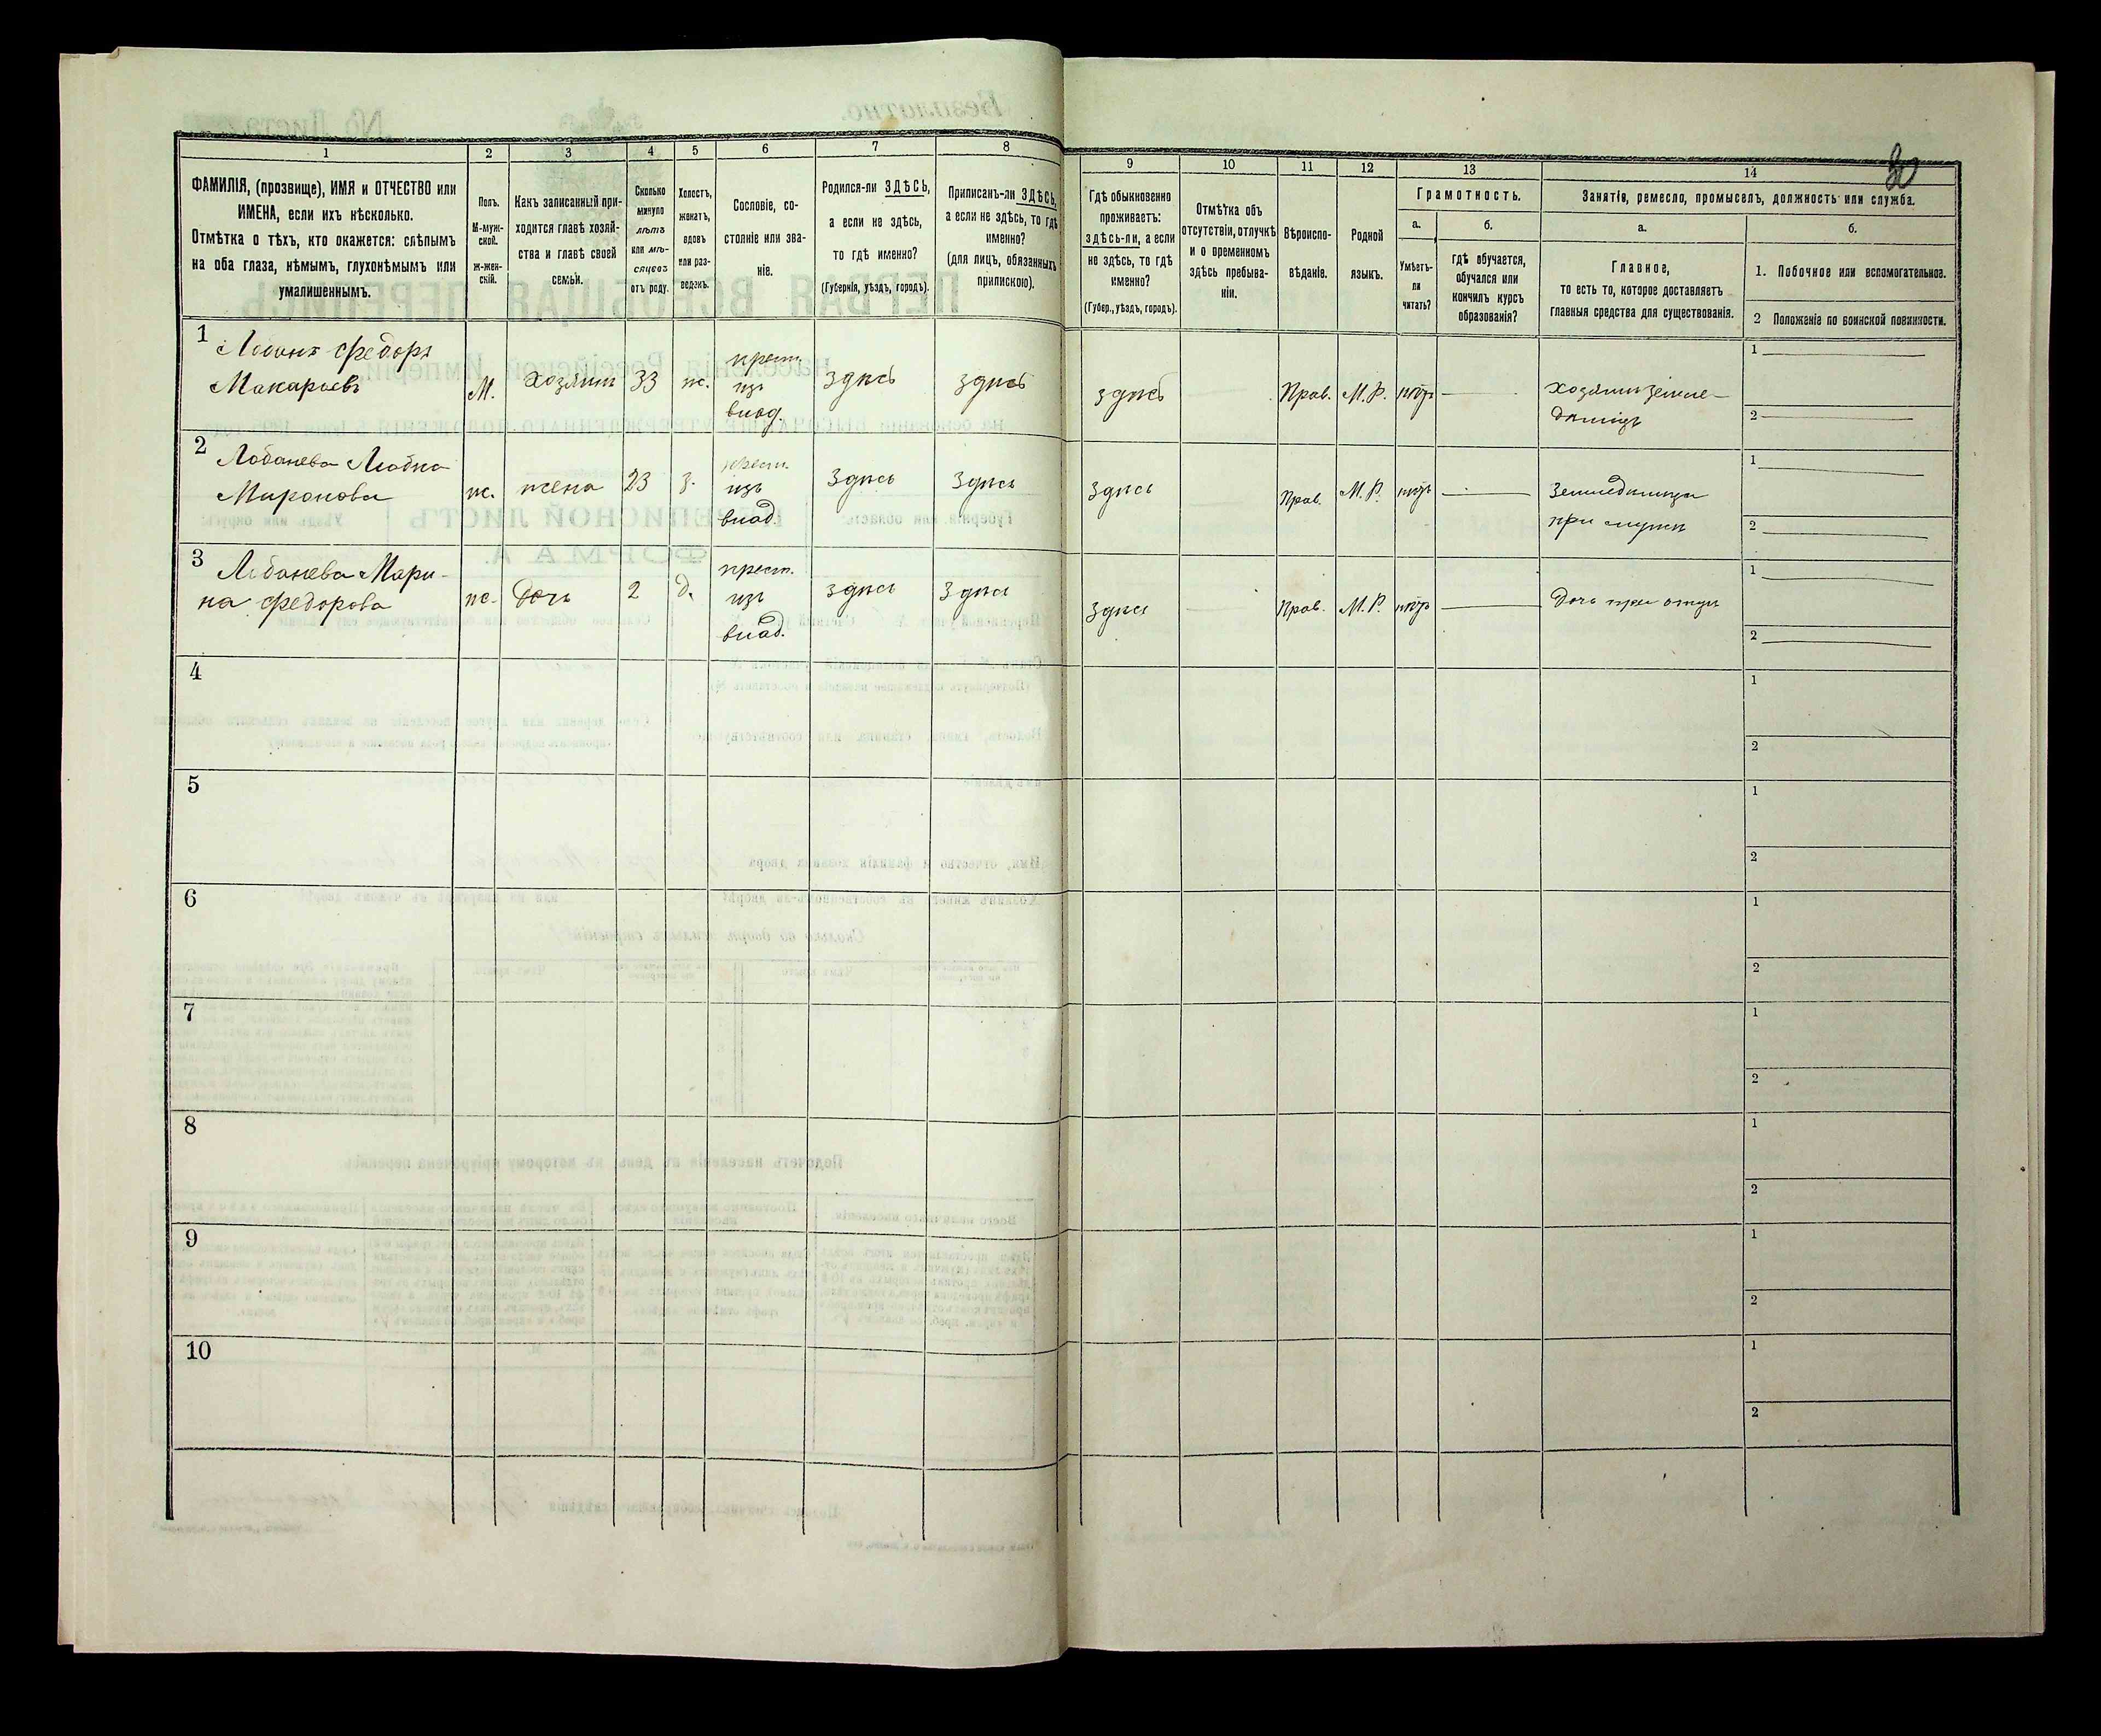 1
2
3
4
5
6
7
8
ФАМИЛІЯ, (прозвище), ИМЯ и ОТЧЕСТВО или
ИМЕНА, если ихъ нѣсколько.
Отмѣтка о тѣхъ, кто окажется: слѣпымъ
на оба глаза, нѣмымъ, глухонѣмымъ или
умалишеннымъ.
Полъ.
М-муж-
ской.
ж-жен-
скій.
Какъ записанный при-
ходится главѣ хозяй-
ства и главѣ своей
семьи.
Сколько
минуло
лѣтъ
или мѣ-
сяцевъ
отъ роду.
Холостъ,
женатъ,
вдовъ
или раз-
веденъ.
Сословіе, со-
стояніе или зва-
ніе.
Родился-ли ЗДѢСЬ,
а если не здѣсь,
то гдѣ именно?
(Губернія, уѣздъ, городъ).
Приписанъ-ли ЗДѢСЬ,
а если не здѣсь, то гдѣ
именно?
(для лицъ, обязанныхъ
припискою).
9
10
11
12
13
14
Гдѣ обыкновенно
проживаетъ:
здѣсь-ли, а если
не здѣсь, то гдѣ
именно?
(Губер., уѣздъ, городъ).
Отмѣтка объ
отсутствіи, отлучкѣ
и о временномъ
здѣсь пребыва-
ніи.
Вѣроиспо-
вѣданіе.
Родной
языкъ.
Грамотность.
а.
Умѣетъ-
ли
читать?
б.
гдѣ обучается,
обучался или
кончилъ курсъ
образованія?
Занятіе, ремесло, промыселъ, должность или служба.
а.
Главное,
то есть то, которое доставляетъ
главныя средства для существованія.
б.
1. Побочное или вспомогательное.
2 Положеніе по воинской повинности.
1
Федоръ
Макаровъ
М.
Хозяинъ
33
ж.
крест.
изъ
влад.
здѣсь
здѣсь
здѣсь
Прав.
М.Р.
нѣтъ
хозяинъ земле-
дѣлецъ
1
2
2
Лобанева Любка
Миронова
ж.
жена
23
з.
крест.
изъ
влад.
Здѣсь
Здѣсь
Здѣсь
Прав.
М.Р.
нѣтъ
Земледѣлица
при мужѣ
1
2
3
Лобанева Мари-
на Федорова
ж.
Дочь
2
д.
крест.
изъ
влад.
здѣсь
Здѣсь
Здѣсь
Прав.
М.Р.
нѣтъ
Дочь при отцѣ
1
2
4
1
2
5
1
2
6
1
2
7
1
2
8
1
2
9
1
2
10
1
2